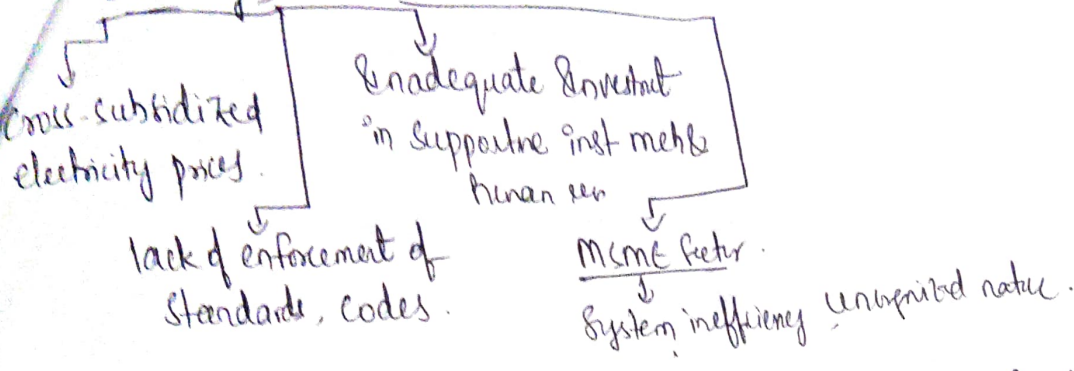 Cross-subsidized
electricity prices.
Inadequate Investmt
in supportive inst mech &
human res
lack of enforcement of
Standards, codes.
MSME sector.
System inefficiency, unorganized nature.